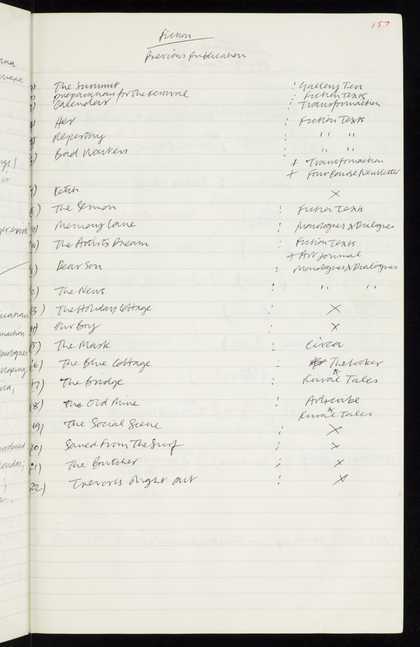 157
Fiction
Previous Publication
The Summit : Gallery Ten
Preparation for the : Fiction Texts
Calendars : Transformaction
Her : Fiction Texts
Repeating : " "
Bad Workers : " "
+ Transformaction
+ Four House Newsletter
Fetch X
8) The Sermon : Fiction Texts
Memory Lane : Monologues & Dialogues
The Artists Dream : Fiction Texts
+ Art Journal
Dear Son : Monologues & Dialogues
The News : " "
13) The Holiday Cottage : X
14) Our Boy : X
15) The Mask : Circa
16) The Blue Cottage : The Looker
17) The Bridge : Rural Tales
18) The Old Mine : Artscribe
Rural Tales
19) The Social Scene : X
20) Saved From The Surf : X
21) The Butcher : X
22) Trevors Night Out : X